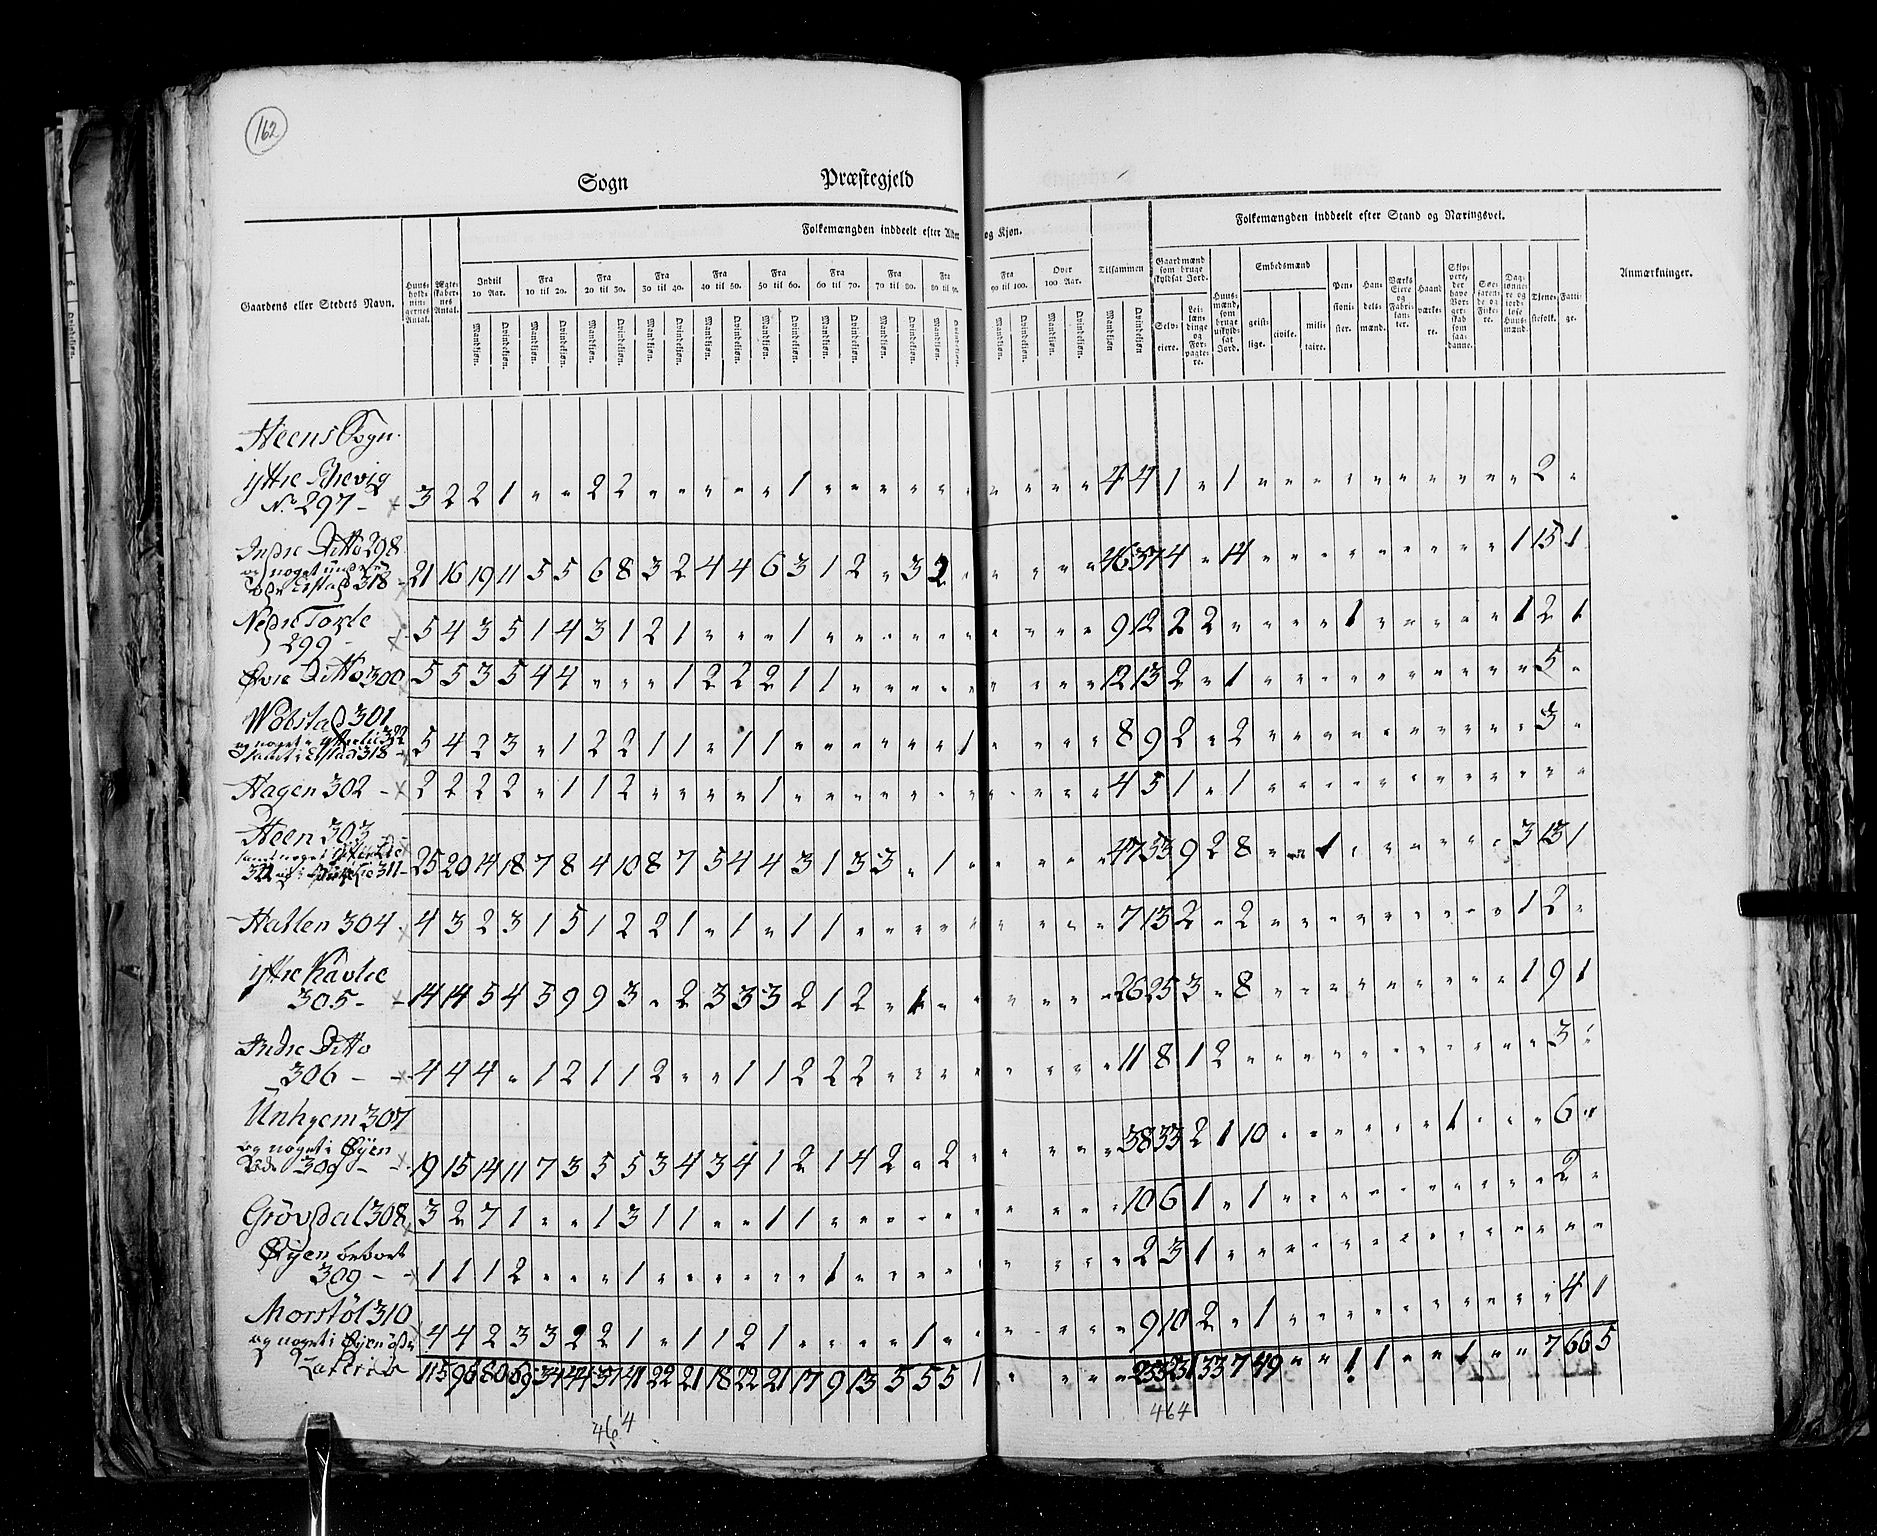 162
Sogn Præstegjeld
Folkemængden inddeelt efter Alder og Kjøn.
Folkemængden inddeelt efter Stand og Næringsvei.
Gaardens eller Stedets Navn.
Huus-holdnin-gernes Antal.
Ægte-skaber-nes Antal.
Indtil 10 Aar.
Fra 10 til 20.
Fra 20 til 30.
Fra 30 til 40.
Fra 40 til 50.
Fra 50 til 60.
Fra 60 til 70.
Fra 70 til 80.
Fra 80 til 90.
Fra 90 til 100.
Over 100 Aar.
Tilsammen
Mandkjøn. Qvindekjøn.
Gaardmænd som bruge skyldsat Jord.
Selv-eiere.
Lei-læn-dinge og For-pagte-re.
Huus-mænd, som bruge uskyld-sat Jord.
Embedsmænd
geist-lige.
civile.
mili-taire.
Pen-sioni-ster.
Han-dels-mænd.
Værks Eiere og Fabri-kan-ter.
Haand værke-re.
Skip-pere, der have Bor-ger-skab som saa-danne.
Søe-farende og Fiske-re.
Dag-lønne-re og jord-løse Huus-mænd.
Tjene-stefolk.
Fatti-ge.
Anmærkninger.
Heens Sogn.
ÿttre
No 297 - 3 2 2 1 " " 2 2 " " " " " 1 " " " " " " " " " " 4 4 1 " 1 " " " " " " " " " " 2 "
Indre Ditto 298
318 21 16 19 11 5 5 6 8 3 2 4 4 6 3 1 2 " 3 2 " " " " " 46 37 4 " 14 " " " " " " " " " 1 15 1
Nedre
299 5 4 3 5 1 4 3 1 2 1 " " " 1 " " " " " " " " " " 9 12 2 2 " " " " 1 " " " " " 1 2 1
Øvre Ditto 300 5 5 3 5 4 4 " " " 1 2 2 2 1 1 " " " " " " " " " 12 13 2 " 1 " " " " " " " " " " 5 "
301
318 5 4 2 3 " 1 2 2 1 1 " 1 1 " " " " " " 1 " " " " 8 9 2 " 2 " " " " " " " " " " 3 "
Hagen 302 - 2 2 2 2 " 1 1 2 " " " " " 1 " " " " " " " " " " 4 5 1 " 1 " " " " " " " " " " " "
Heen 303
311 - 25 20 14 18 7 8 4 10 8 7 5 4 4 3 1 3 3 " 1 " " " " " 47 53 9 2 8 " " 1 " " " " " " 3 13 1
Hatlen 304 4 3 2 3 1 5 1 2 2 1 " 1 " 1 1 " " " " " " " " " 7 13 2 " 2 " " " " " " " " " 1 2 "
ÿttre Kavlie
305 - 14 14 5 4 5 9 9 3 " 2 3 3 3 2 1 2 " 1 " " " " " " 26 25 3 " 8 " " " " " " " " " 1 9 1
Indre Ditto
306 - 4 4 4 " 1 2 1 1 2 " " 1 1 2 2 2 " " " " " " " " 11 8 1 2 " " " " " " " " " " " 3 "
Unhjem 307
og noget i Øÿen
309 - 19 15 14 11 7 3 5 5 3 4 3 4 1 2 1 4 2 " 2 " " " " " 38 33 2 1 10 " " " " " " " 1 " " 6 "
Grøvdal 308 3 2 7 1 " " 1 3 1 1 " " 1 1 " " " " " " " " " " 10 6 1 " 1 " " " " " " " " " " 2 "
Øÿen
309 - 1 1 1 2 " " " 1 " " " " " " 1 " " " " " " " " " 2 3 1 " " " " " " " " " " " " " "
Morstøl 310
og noget i Øÿen 4 4 2 3 3 2 2 1 " 1 1 2 1 " " " " 1 " " " " " " 9 10 2 " 1 " " " " " " " " " " 4 1
115 96 80 69 34 44 37 41 22 21 18 22 21 17 9 13 5 5 5 1 " " " " 233 231 33 7 49 " " 1 1 " " 1 " " 7 66 5
464
464